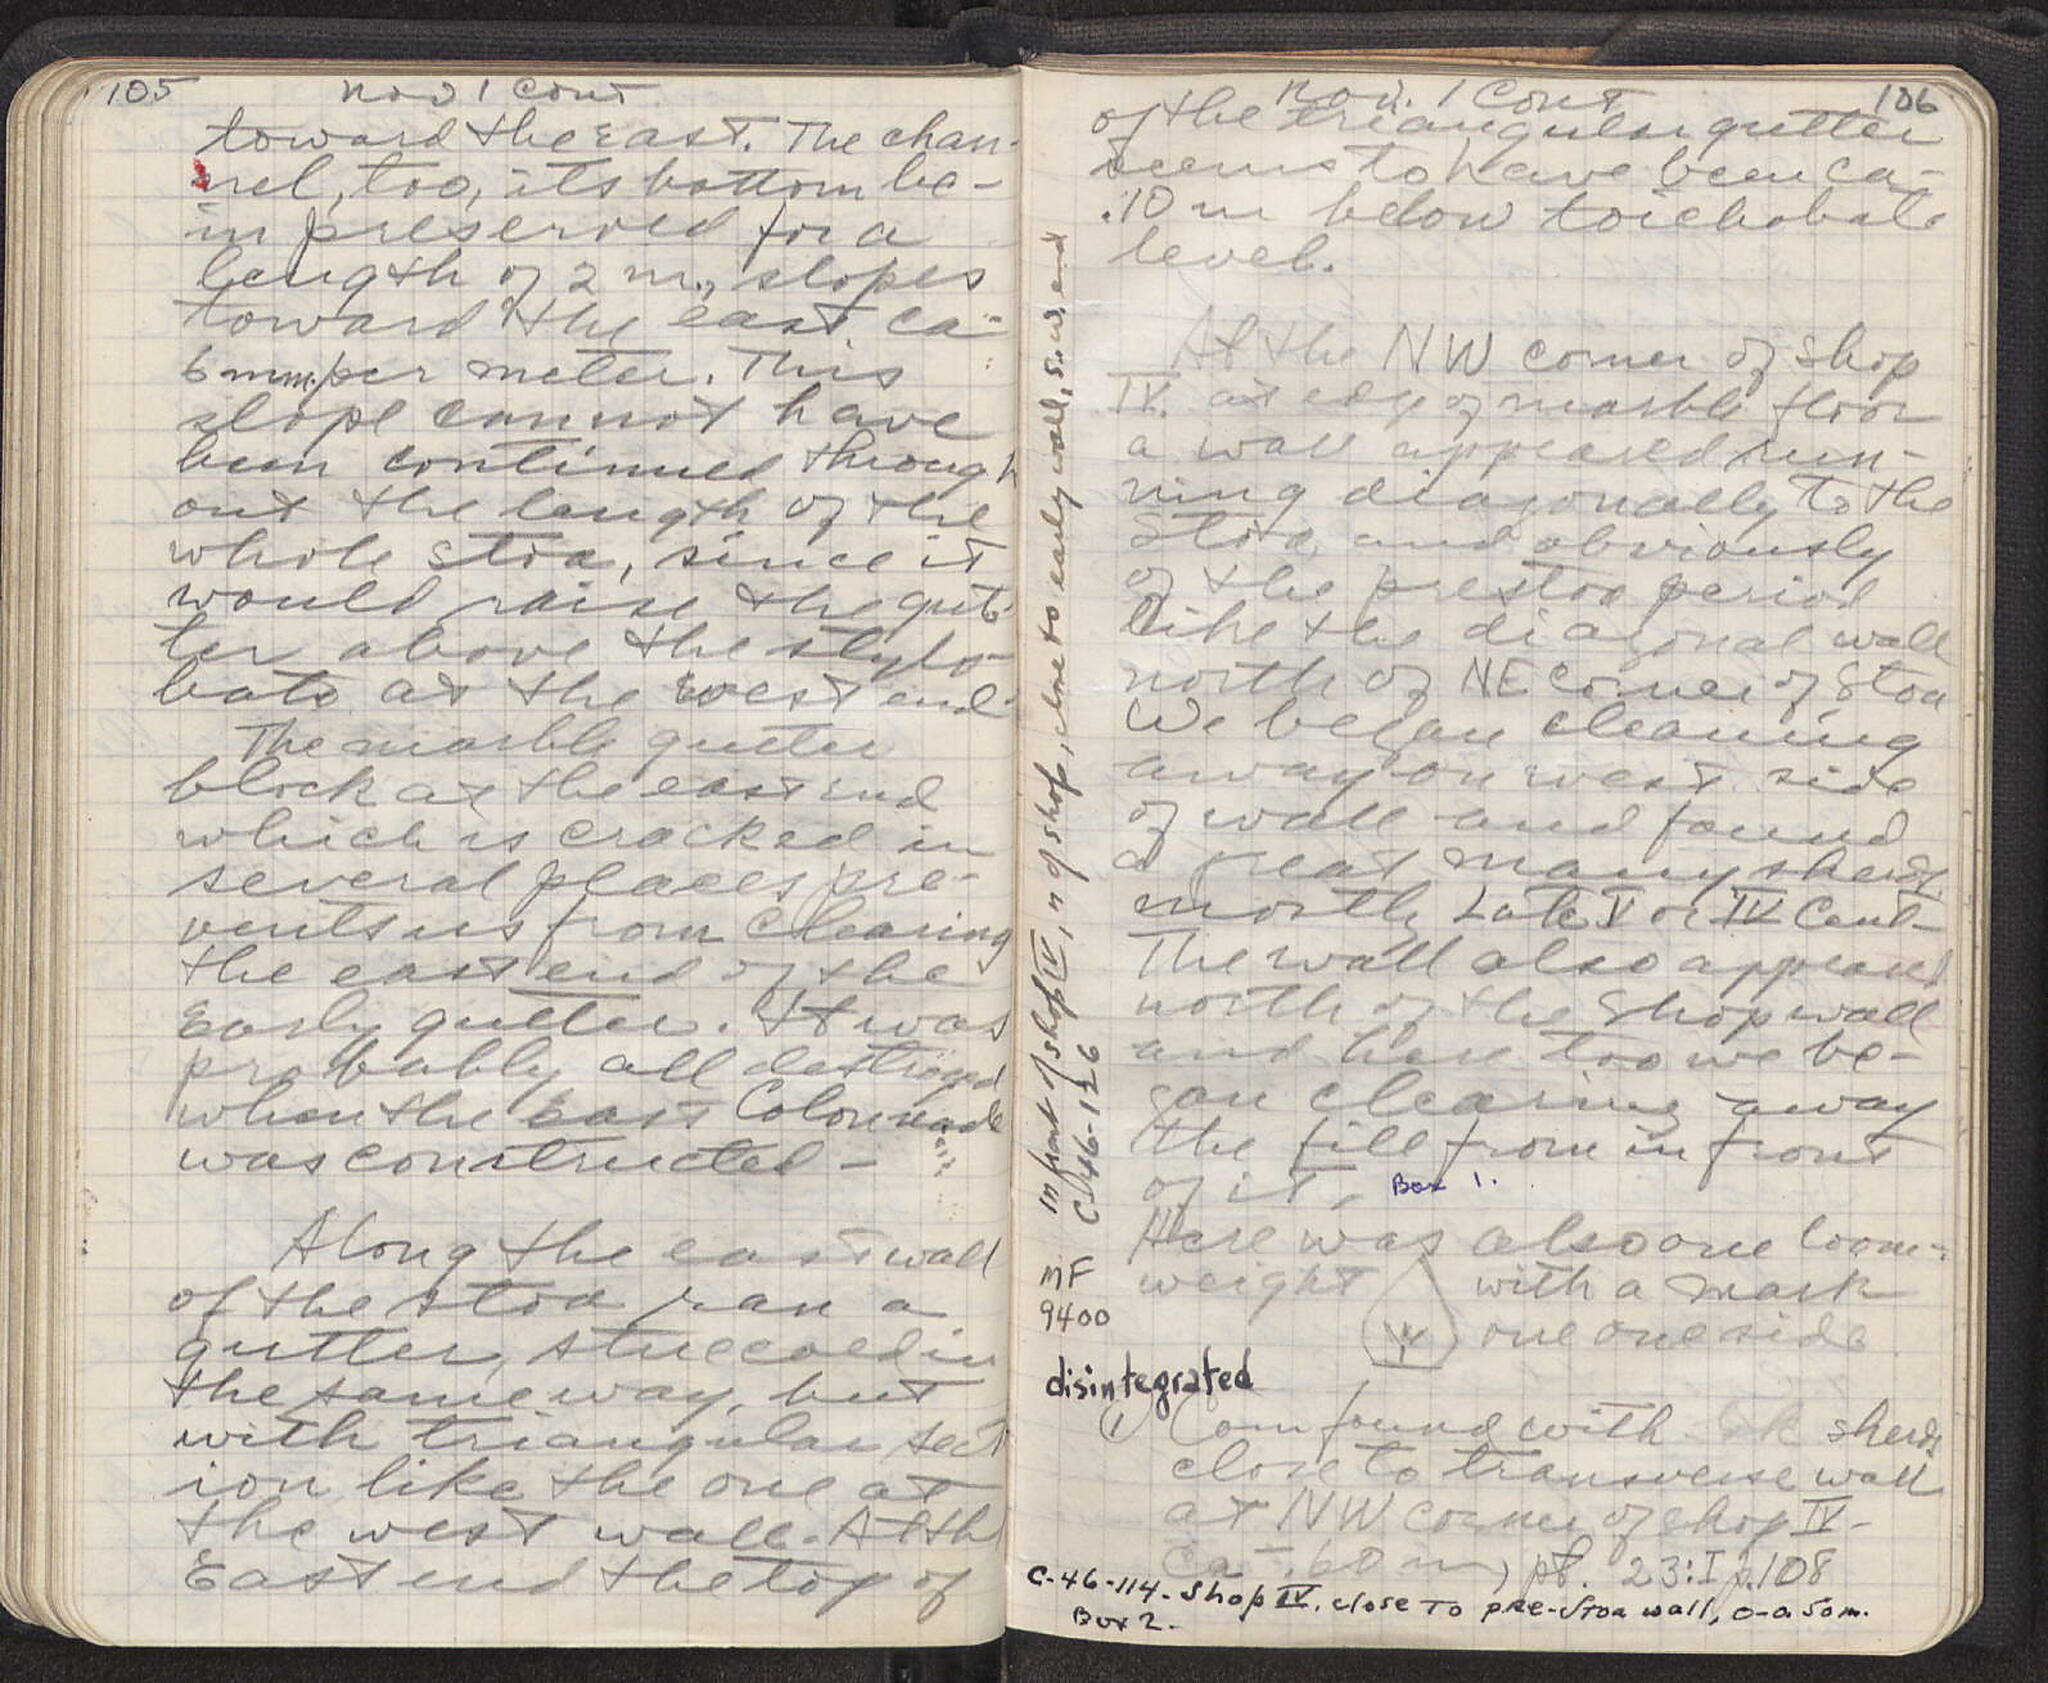 105 Nov 1 Cont
toward the East. The chan-
nel, too, its bottom be-
in preserved for a
length of 2 m., slopes
toward the east ca-
6 mm. per meter. This
slope cannot have
been continued through
out the length of the
whole stoa, since it
would raise the gut-
ter above the stylo-
bate at the west end.
The marble gutter
block at the east end
which is cracked in
several places pre-
vents us from clearing
the east end of the
Early gutter. It was
probably all destroyed
when the East Colonnade
was constructed -
Along the east wall
of the stoa ran a
gutter, stuccoed in
the same way, but
with triangular sect
ion like the one at
the west wall. At the
East end the top of
Nov. 1 Cont 106
of the triangular gutter
seems to have been ca-
.10 m below toichobate
level.
At the NW corner of Shop
IV. at edge of marble floor
a wall appeared run-
ning diagonally to the
Stoa and obviously
of the prestoa period
like the diagonal wall
north of NE Corner of Stoa
We began cleaning
away on west side
of wall and found
a great many sherds
mostly Late V or IV Cent-
The wall also appeared
north of the Shop wall
and here too we be-
gan clearing away
the fill from in front
of it. Box 1.
Here was also one loom-
weight with a mark
one one side
MF
9400
disintegrated
① Coin found with sherds
close to transverse wall
at NW corner of shop IV-
Ca -.60 m, pt. 23:I p.108
C-46-114. Shop IV. close to pre-Stoa wall, 0-0.50m.
Box 2.
in front of shop IV, n of shop, close to early wall, S.W. end
C-46-126